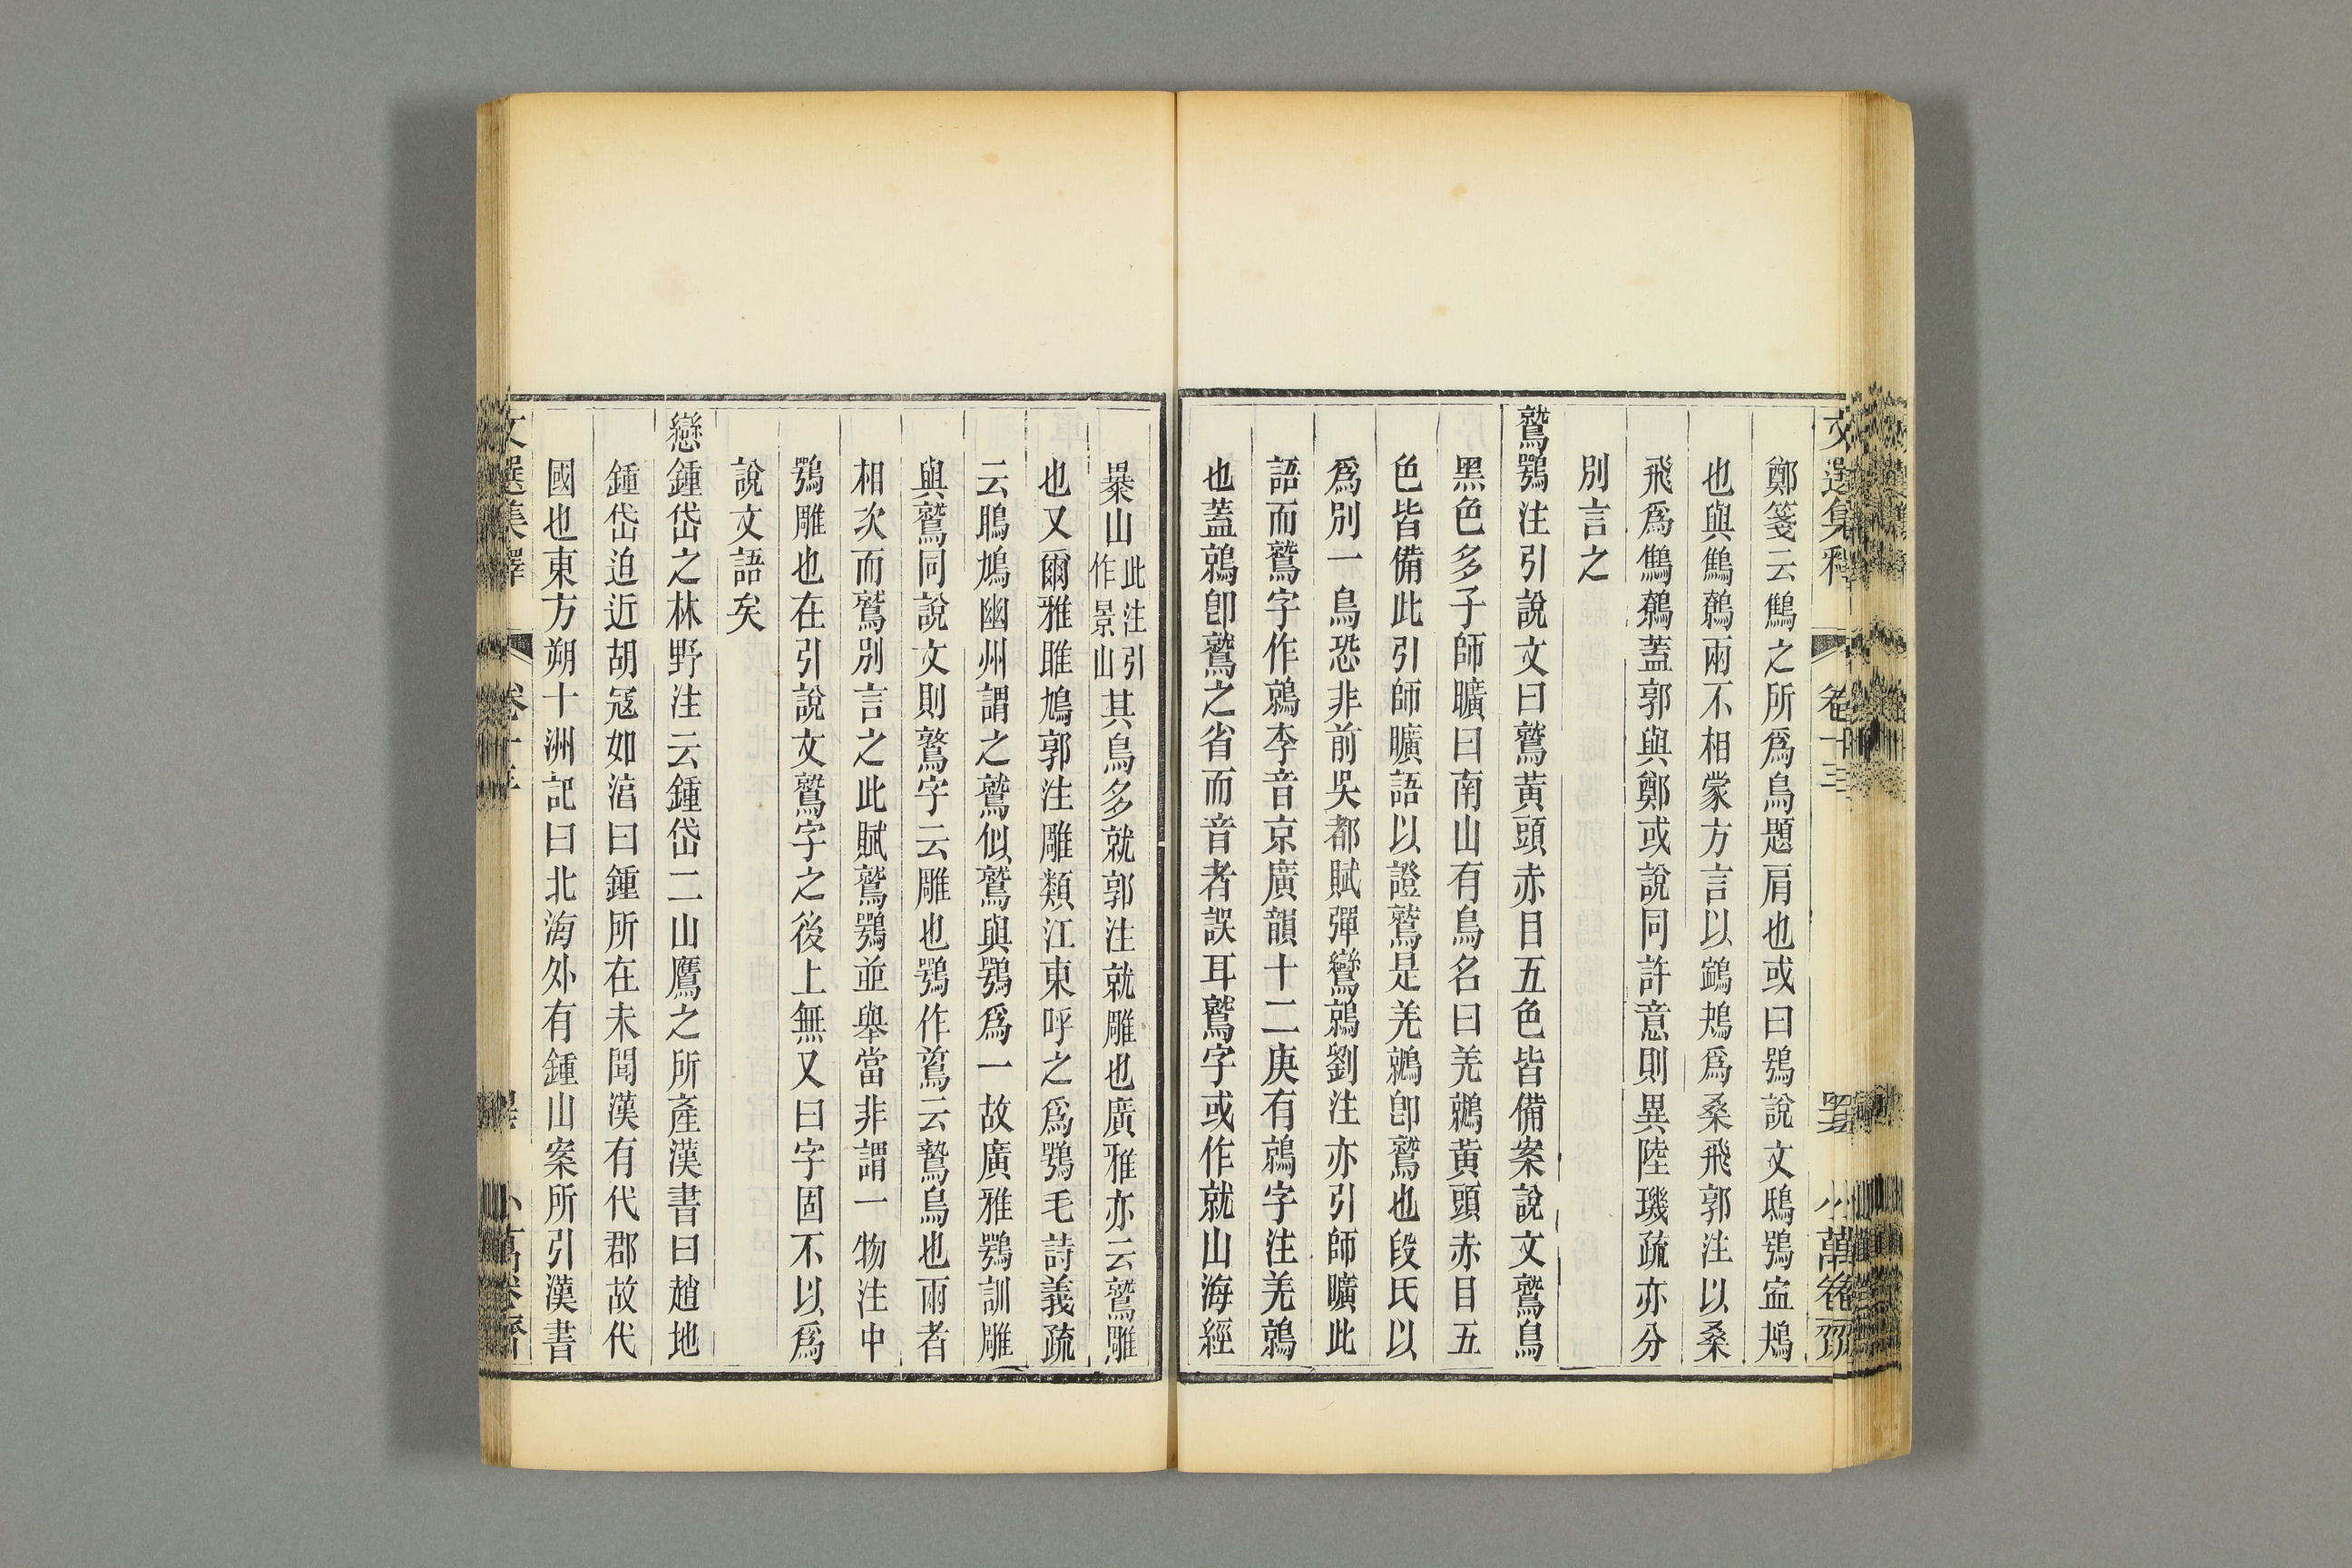 文選集釋 卷十三 小萬卷齋
鄭箋云鷦之所爲鳥題肩也或曰鴞說文鴟鴞寍鴂
也與鷦鷯兩不相蒙方言以鷦鴂爲桑飛郭注以桑
飛爲鷦鷯蓋郭與鄭或說同許意則異陸璣疏亦分
別言之
鷲鶚注引說文曰鷲黃頭赤目五色皆備案說文鷲鳥
黑色多子師曠曰南山有鳥名曰羌鷲黃頭赤目五
色皆備此引師曠語以證鷲是羌鷲卽鷲也段氏以
爲別一鳥恐非前吳都賦彈鸞鶁劉注亦引師曠此
語而鷲字作鶁李音京廣韻十二庚有鶁字注羌鶁
也蓋鶁卽鷲之省而音者誤耳鷲字或作就山海經
暴山此注引作景山其鳥多就郭注就雕也廣雅亦云鷲雕
也又爾雅雎鳩郭注雕類江東呼之爲鶚毛詩義疏
云鵰鳩幽州謂之鷲似鷲與鶚爲一故廣雅鶚訓雕
與鷲同說文則鷻字云雕也鶚作蔦云鷙鳥也兩者
相次而鷲別言之此賦鷲鶚並舉當非謂一物注中
鶚雕也在引說文鷲字之後上無又曰字固不以爲
說文語矣
戀鍾岱之林野注云鍾岱二山鷹之所產漢書曰趙地
鍾岱迫近胡寇如湻曰鍾所在未聞漢有代郡故代
國也東方朔十洲記曰北海外有鍾山案所引漢書
文選集釋 卷十三 小萬卷齋